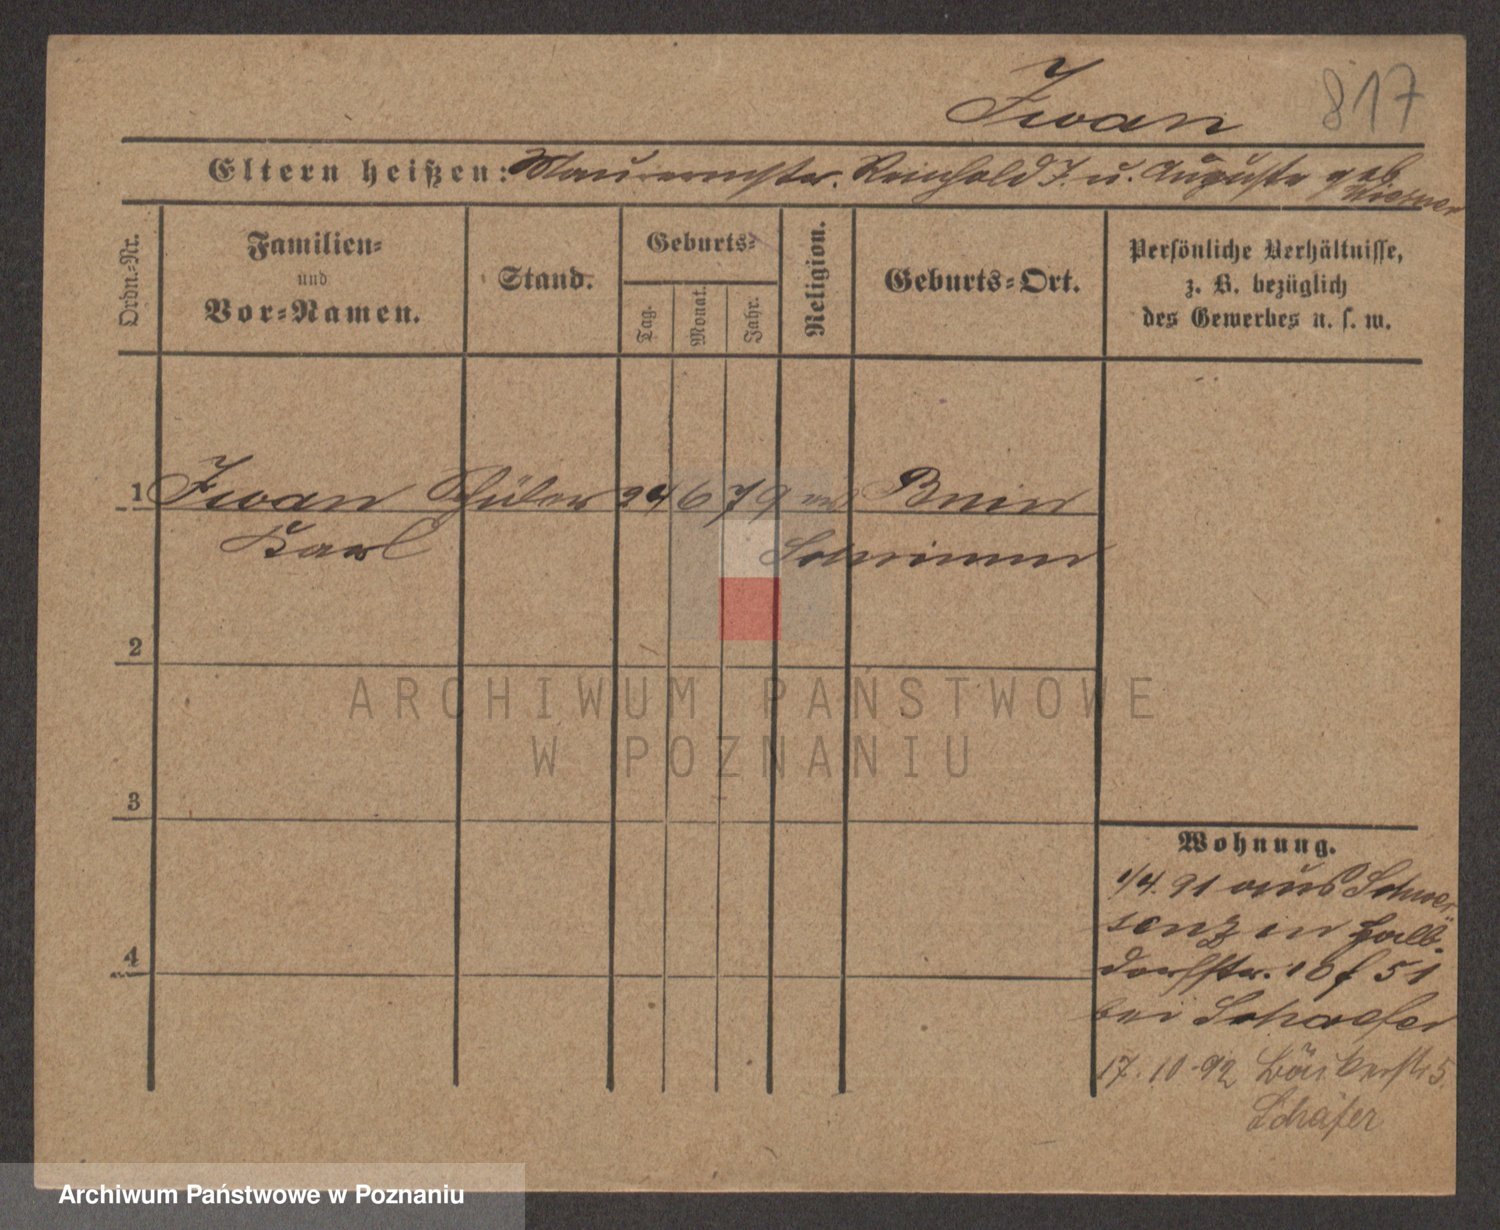 Iwan 817
Eltern heißen: Maurermstr. Reinhold I. u. Auguste geb
Wiesner
Ordn.-Nr.
Familien-
und
Vor-Namen.
Stand.
Geburts-
Tag.
Monat.
Jahr.
Religion.
Geburts-Ort.
Persönliche Verhältnisse,
z. B. bezüglich
des Gewerbes u. s. w.
1 Iwan Schüler 24 6 79 ev Bnin
Karl Schrimm
2
ARCHIWUM PAŃSTWOWE
W POZNANIU
3
Wohnung.
1/4. 91 aus Schwer-
senz in Halb-
dorfstr. 10 f 51
bei Schaefer
4
17.10.92 Bäckerstr 5.
Schäfer
Archiwum Państwowe w Poznaniu